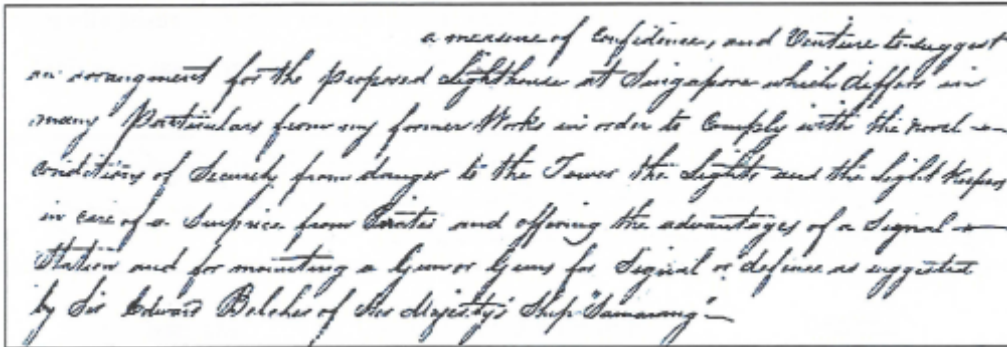 a measure of Confidence, and Venture to suggest
an arrangment for the proposed Lighthouse at Singapore which differs in
many Particulars from my former Works in order to Comply with the novel
conditions of Security from danger to the Tower the Lights and the Light Keepers
in case of a Surprise from Pirates and offering the advantages of a Signal
Station and for mounting a Gun or Guns for Signal or defence as suggested
by Sir Edward Belcher of Her Majesty's Ship "Samarang"